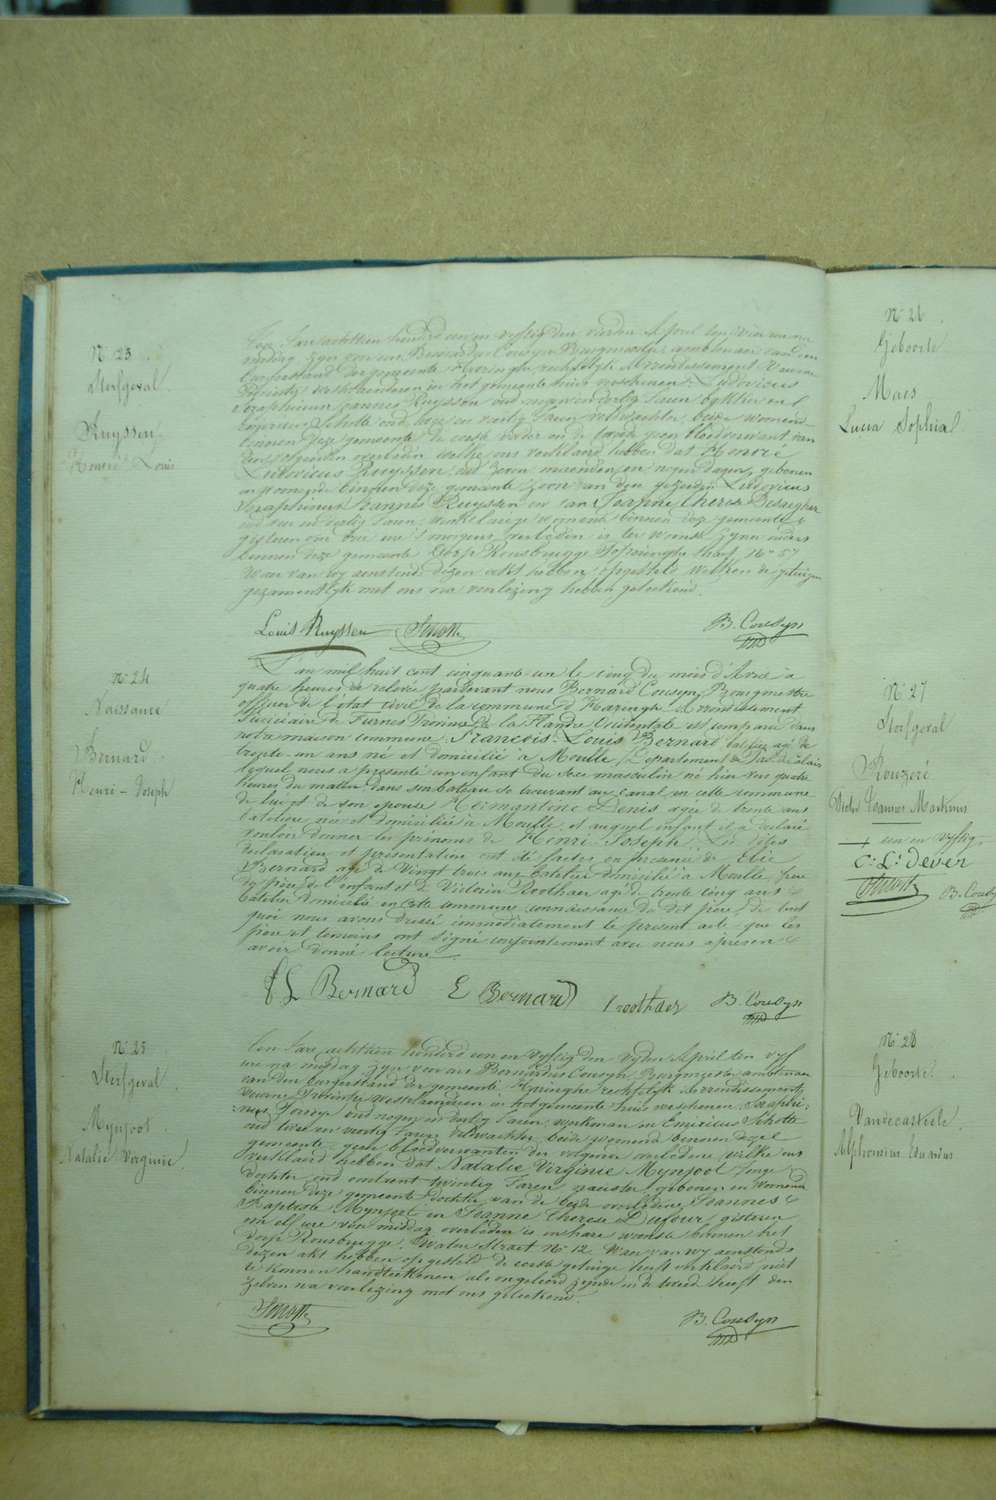 N° 23
Sterfgeval
Ruyssen
Henri Louis
Ten Jare achttien honderd een en vyftig den vierden April ten vier uren na
middag zyn voor ons Bernardus Cousyn Burgmeester ambtenaar van den
burgerstand der gemeente Haringhe rechtelyk Arrondissement Veurne
Provintie Westvlaenderen in het gemeente huis verschenen Ludovicus
Seraphinus Joannes Ruyssen oud
Emericus Schotte oud veertig Jaren veldwachter beide wonende
binnen deze gemeente de eerste vader en de tweede geen bloedverwant van
den volgenden overleden welke ons verklaerd hebben dat Henri
Ludovicus Ruyssen oud zeven maenden en negen dagen, geboren
binnen deze gemeente zoon van den gezeiden Ludovicus
Seraphinus Joannes Ruyssen en van Jeanne Therese
oud Jaren, wonende binnen deze gemeente,
gisteren om drie uren 's morgens overleden is ter woonste zyner ouders
binnen deze gemeente dorp Rousbrugge straet N° 57
Waer van wy aenstonds dezen akt hebben opgesteld welken de getuigen
gezamentlyk met ons na voorlezing hebben geteekend.
Louis Ruyssen Schotte B. Cousyn
N° 24
Naissance
Bernard
Henri - Joseph
L'an mil huit cent cinquante un le cinq du mois d'Avril à
quatre heures de relevée pardevant nous Bernard Cousyn, Bourgmestre
officier de l'état civil de la commune d'Haringhe Arrondissement
Judiciaire de Furnes Province de la Flandre Occidentale est comparu dans
notre maison commune, François-Louis Bernard batelier agé de
trente-un ans né et domicilié à Moulle (Département du Pas de Calais
lequel nous a présenté un enfant du sexe masculin né hier vers quatre
heures du matin dans son bateau se trouvant au canal en cette commune
de lui et de son epouse Hermantine Denis agée de trente ans
batelière née et domiciliée à Moulle, et auquel enfant il a déclaré
vouloir donner les prénoms de Henri-Joseph. Les dites
declaration et présentation ont été faites en présence de Elie
Bernard agé de Vingt trois ans batelier domicilié à Moulle, frère
du père de l'enfant et de Victorin Roothaer agé de trente cinq ans
batelier domicilié en cette commune, connaissance du dit père, de tout
quoi nous avons dressé immédiatement le présent acte que les
père et temoins ont signé conjointement avec nous après en
avoir donné lecture.
F L Bernard E Bernard Roothaer B. Cousyn
N° 25
Sterfgeval
Mynsoot
Natalie Verginie
Ten Jare achttien honderd een en vyftig den vyfden April ten vyf
ure na middag zyn voor ons Bernardus Cousyn Burgmeester ambtenaar
van den burgerstand der gemeente Haringhe rechtelyk Arrondissement
Veurne Provintie Westvlaenderen in het gemeente huis verschenen Seraphi-
nus oud negen en dertig Jaren, werkman en Emericus Schotte
oud veertig Jaren veldwachter, beide wonende binnen deze
gemeente, geene bloedverwanten der volgende overledene welke ons
verklaerd hebben dat Natalie Virginie Mynsoot Jonge
dochter oud omtrent twintig Jaren naeister geboren en wonende
binnen deze gemeente dochter van de beide overledene Joannes
Baptiste Mynsoot en Jeanne Therese Dufour, gisteren
om elf ure voor middag overleden is in hare woonste binnen het
dorp Rousbrugge, Water Straet N° 12. Waer van wy aenstonds
dezen akt hebben opgesteld de eerste getuige heeft verklaerd niet
te konnen handteekenen als ongeleerd zynde en de tweede heeft den
zelven na voorlezing met ons geteekend.
Schotte B. Cousyn
N° 26
Geboorte
Maes
Lucia Sophia
N° 27
Sterfgeval
Rouzeré
Victor Joannes Martinus
+ een en vyftig.
C: L: Dever
Schotte B. Cousyn
N° 28
Geboorte
Vandecasteele
Alphonsius Eduardus